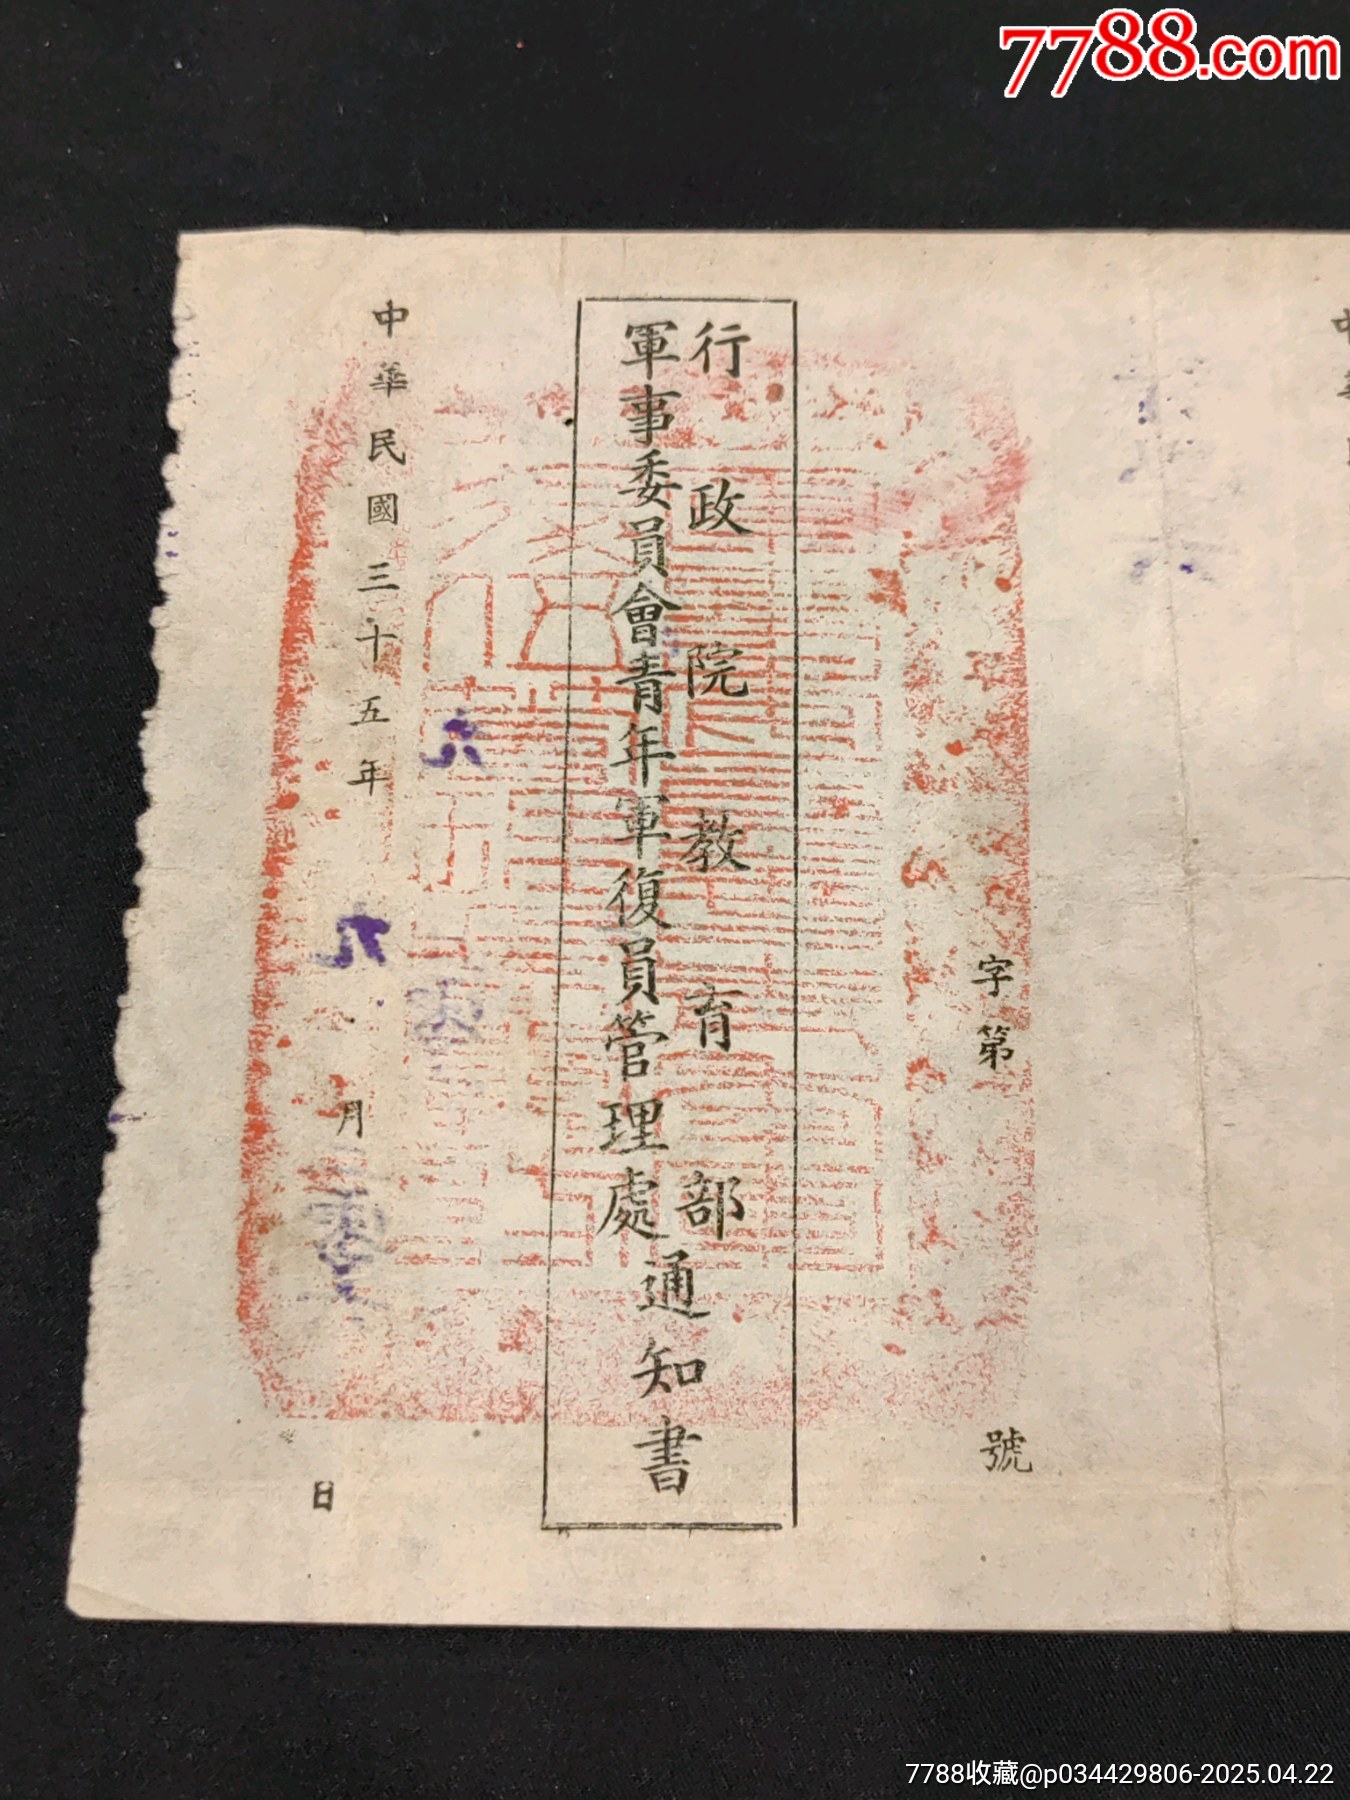 7788.com
字第 號
行政院教育部
軍事委員會青年軍復員管理處
通知書
中華民國三十五年 九 月 日
六
7788收藏@p034429806-2025.04.22